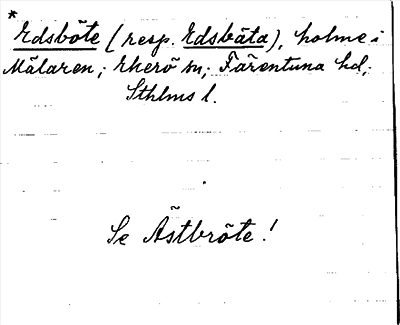 *
Edsböte (resp. Edsbäta), holme i
Mälaren; Ekerö sn; Färentuna hd;
Sthlms l.
Se Ästbröte!